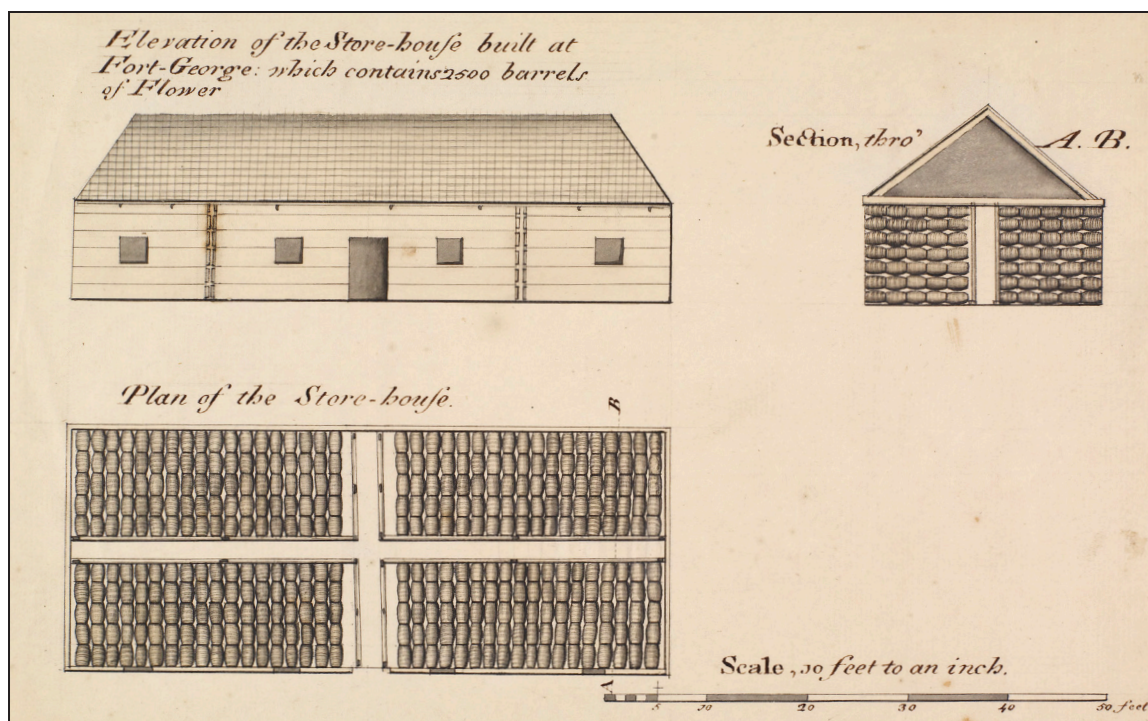 Elevation of the Store-house built at
Fort-George: which contains 2500 barrels
of Flower
Section, thro' A. B.
Plan of the Store-house.
B
Scale, 10 feet to an inch.
A
5 10 20 30 40 50 feet